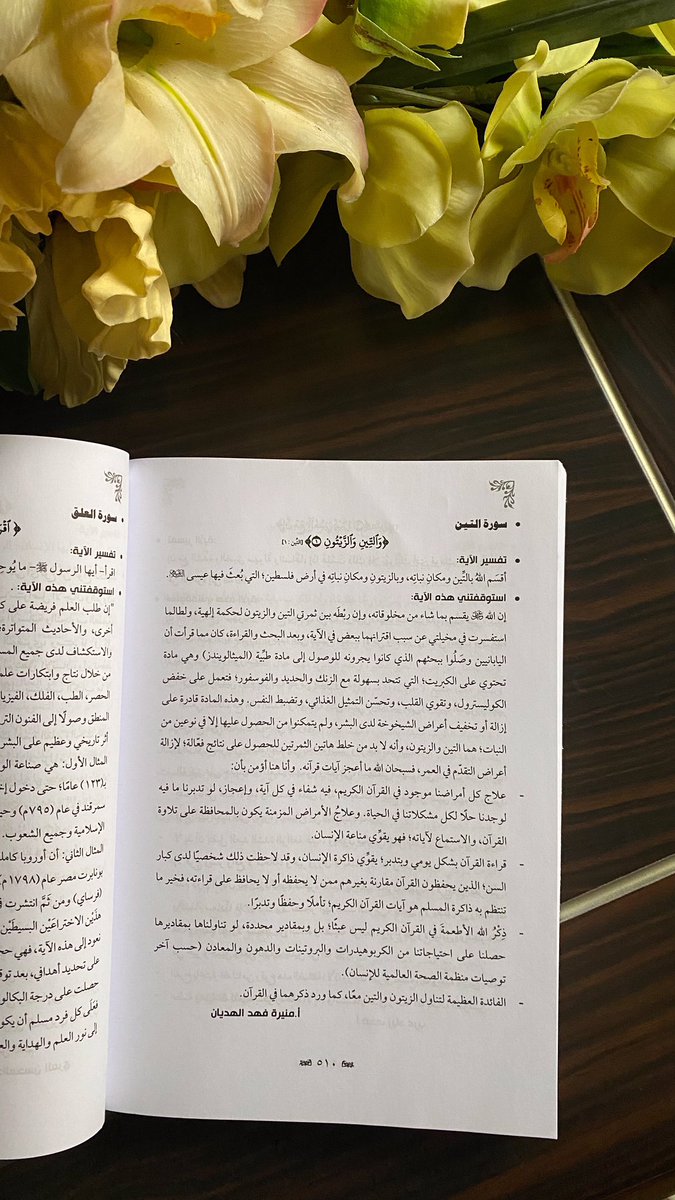 • سورة التين
﴿وَٱلتِّينِ وَٱلزَّيْتُونِ ۝١﴾ [التين: ١]
• تفسير الآية:
أقسَم اللهُ بالتِّينِ ومكانِ نباتِه، وبالزيتونِ ومكانِ نباتِه في أرض فلسطين؛ التي بُعثَ فيها عيسى ﷺ.
• استوقفتني هذه الآية:
إن الله ﷻ يقسم بما شاء من مخلوقاته، وإن ربْطَه بين ثمرتي التين والزيتون لحكمة إلهية، ولطالما
استفسرت في مخيلتي عن سبب اقترانهما ببعض في الآية، وبعد البحث والقراءة، كان مما قرأت أن
اليابانيين وصَلُوا ببحثهم الذي كانوا يجرونه للوصول إلى مادة طبِّية (الميثالويندز) وهي مادة
تحتوي على الكبريت؛ التي تتحد بسهولة مع الزنك والحديد والفوسفور؛ فتعمل على خفض
الكوليسترول، وتقوي القلب، وتحسّن التمثيل الغذائي، وتضبط النفس. وهذه المادة قادرة على
إزالة أو تخفيف أعراض الشيخوخة لدى البشر، ولم يتمكنوا من الحصول عليها إلا في نوعين من
النبات؛ هما التين والزيتون، وأنه لا بد من خلط هاتين الثمرتين للحصول على نتائج فعّالة؛ لإزالة
أعراض التقدّم في العمر، فسبحان الله ما أعجز آيات قرآنه. وأنا هنا أؤمن بأن:
- علاج كل أمراضنا موجود في القرآن الكريم، فيه شفاء في كل آية، وإعجاز، لو تدبرنا ما فيه
لوجدنا حلًّا لكل مشكلاتنا في الحياة. وعلاجُ الأمراض المزمنة يكون بالمحافظة على تلاوة
القرآن، والاستماع لآياته؛ فهو يقوِّي مناعة الإنسان.
- قراءة القرآن بشكل يومي وبتدبر؛ يقوِّي ذاكرة الإنسان، وقد لاحظت ذلك شخصيًا لدى كبار
السن؛ الذين يحفظون القرآن مقارنة بغيرهم ممن لا يحفظه أو لا يحافظ على قراءته، فخير ما
تنتظم به ذاكرة المسلم هو آيات القرآن الكريم؛ تأملًا وحفظًا وتدبرًا.
- ذِكْرُ الله الأطعمةَ في القرآن الكريم ليس عبثًا؛ بل وبمقادير محددة، لو تناولناها بمقاديرها
حصلنا على احتياجاتنا من الكربوهيدرات والبروتينات والدهون والمعادن (حسب آخر
توصيات منظمة الصحة العالمية للإنسان).
- الفائدة العظيمة لتناول الزيتون والتين معًا، كما ورد ذكرهما في القرآن.
أ.منيرة فهد الهديان
٥١٠
• سورة العلق
• تفسير الآية:
اقرأ- أيها الرسول ﷺ- ما
• استوقفتني هذه الآية:
"إن طلب العلم فريضة على
أخرى، والأحاديث المتواترة؛
والاستكشاف لدى جميع
من خلال نتاج وابتكارات
الحصر، الطب، الفلك،
المنطق وصولًا إلى الفنون
أثر تاريخي وعظيم على البشر
المثال الأول: هي صناعة
بـ(١٢٣) عامًا؛ حتى دخول
سمرقند في عام (٧٩٥م)
الإسلامية وجميع الشعوب.
المثال الثاني: أن أوروبا
بونابرت مصر عام (١٧٩٨م)
(فرساي) ومن ثَمَّ انتشرت
هذَيْن الاختراعَيْن
نعود إلى هذه الآية، فهي
على تحديد أهدافي، بعد
حصلت على درجة
فعَلى كل فرد مسلم أن
إلى نور العلم والهداية